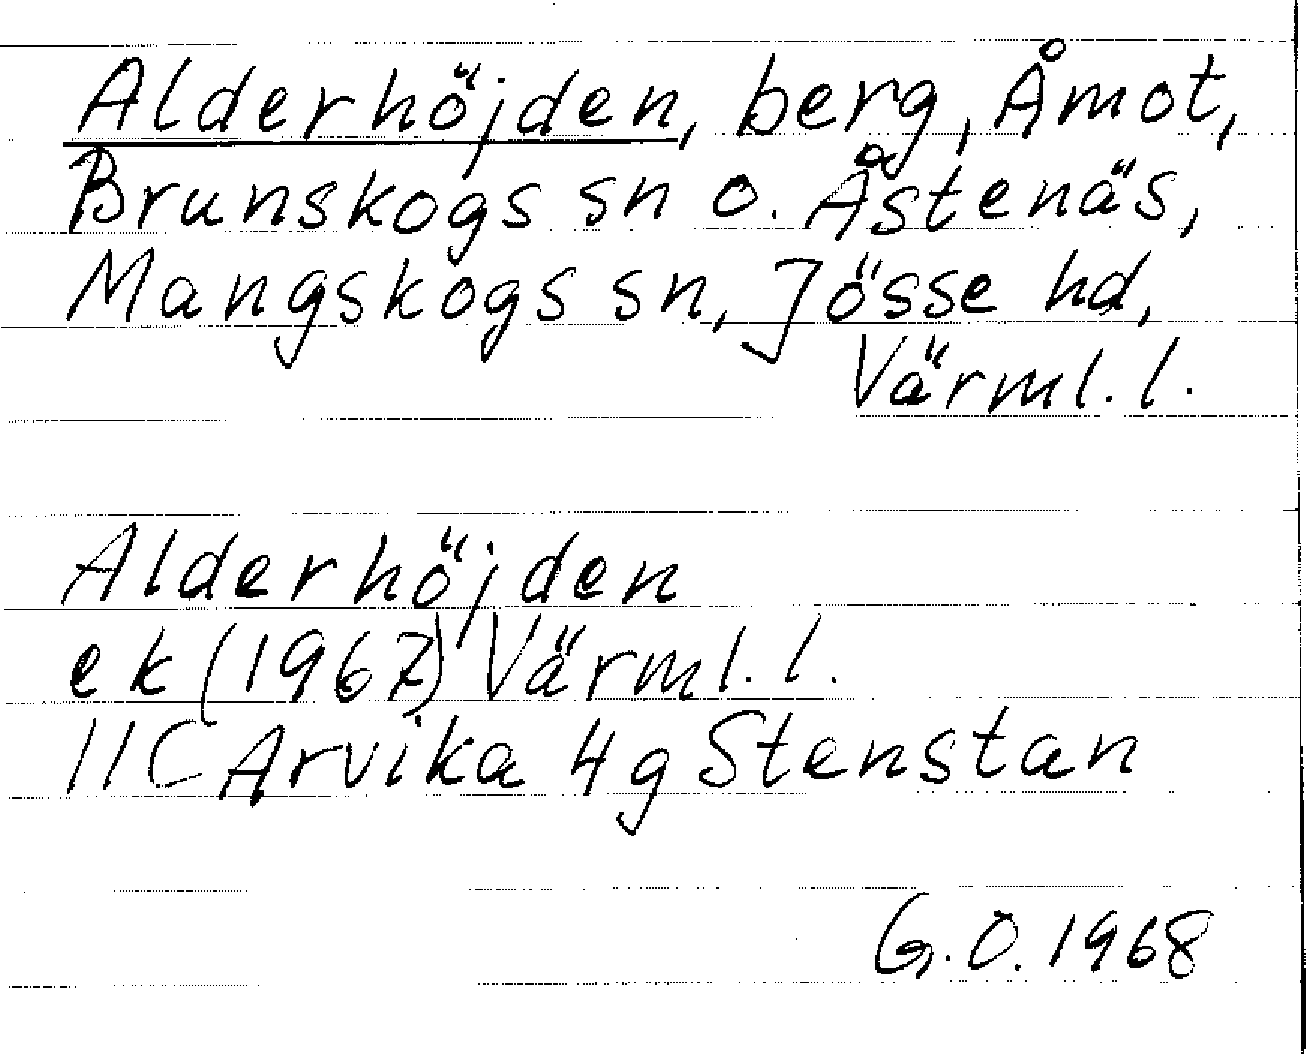 Alderhöjden, berg, Åmot,
Brunskogs sn o. Åstenäs,
Mangskogs sn, Jösse hd,
Värml. l.
Alderhöjden
ek (1967) Värml. l.
11C Arvika 4g Stenstan
G. O. 1968